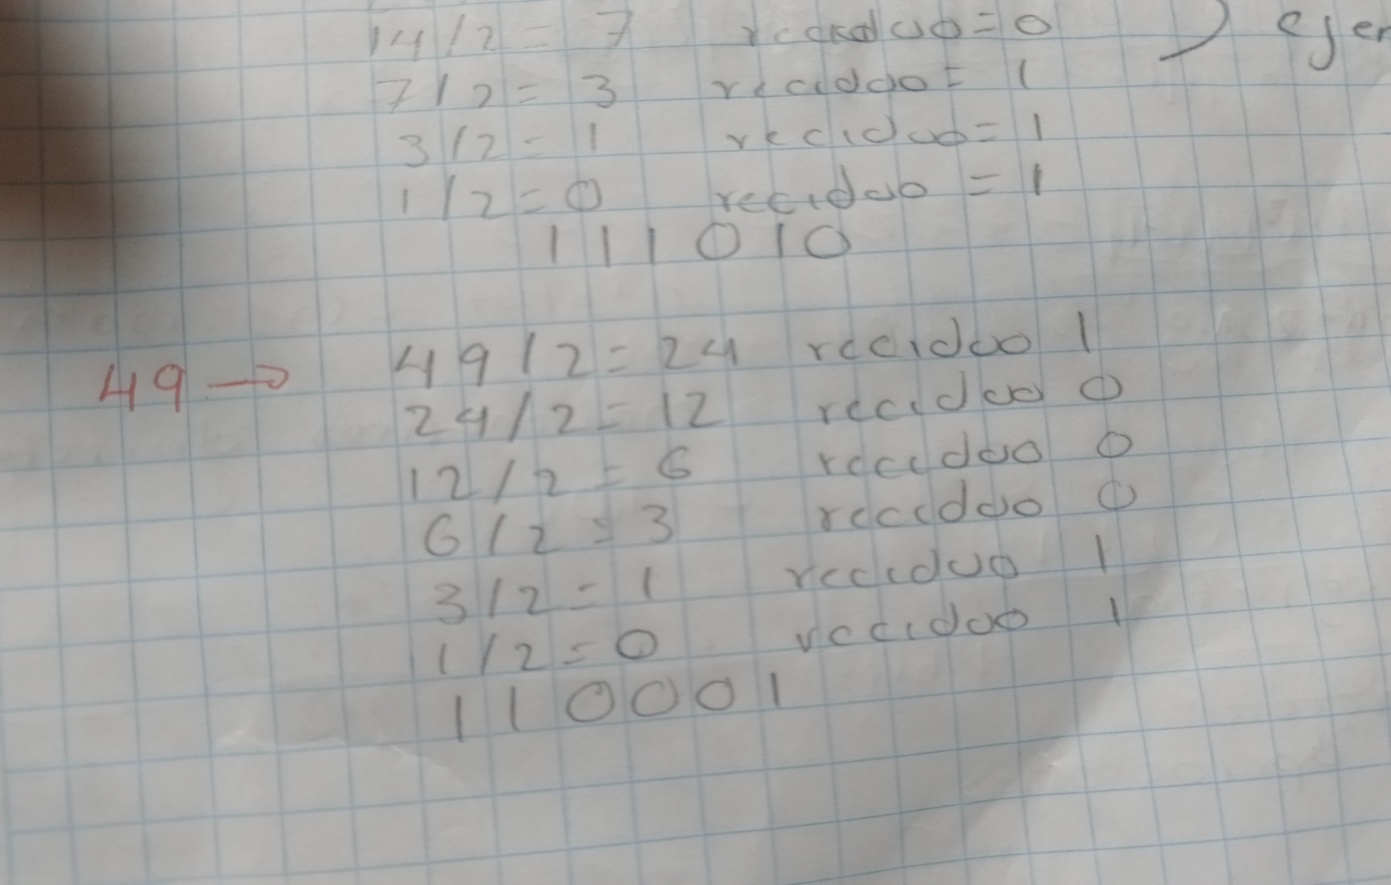 14/2 = 7 reciduo = 0 ) ejer
7/2 = 3 reciduo = 1
3/2 = 1 reciduo = 1
1/2 = 0 reciduo = 1
111010
49 → 49/2 = 24 reciduo 1
24/2 = 12 reciduo 0
12/2 = 6 reciduo 0
6/2 = 3 reciduo 0
3/2 = 1 reciduo 1
1/2 = 0 reciduo 1
110001